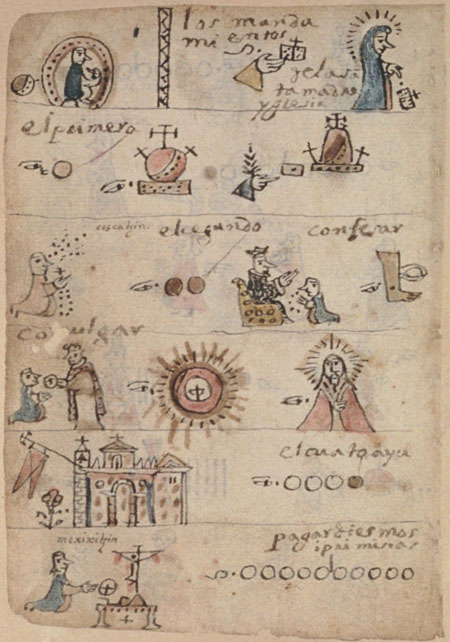 los manda
mientos
de la sa
ta madre
yglesia
el primero
el segundo
confesar
co ulgar
el cuat ayu
pagar dies mos
i primisias